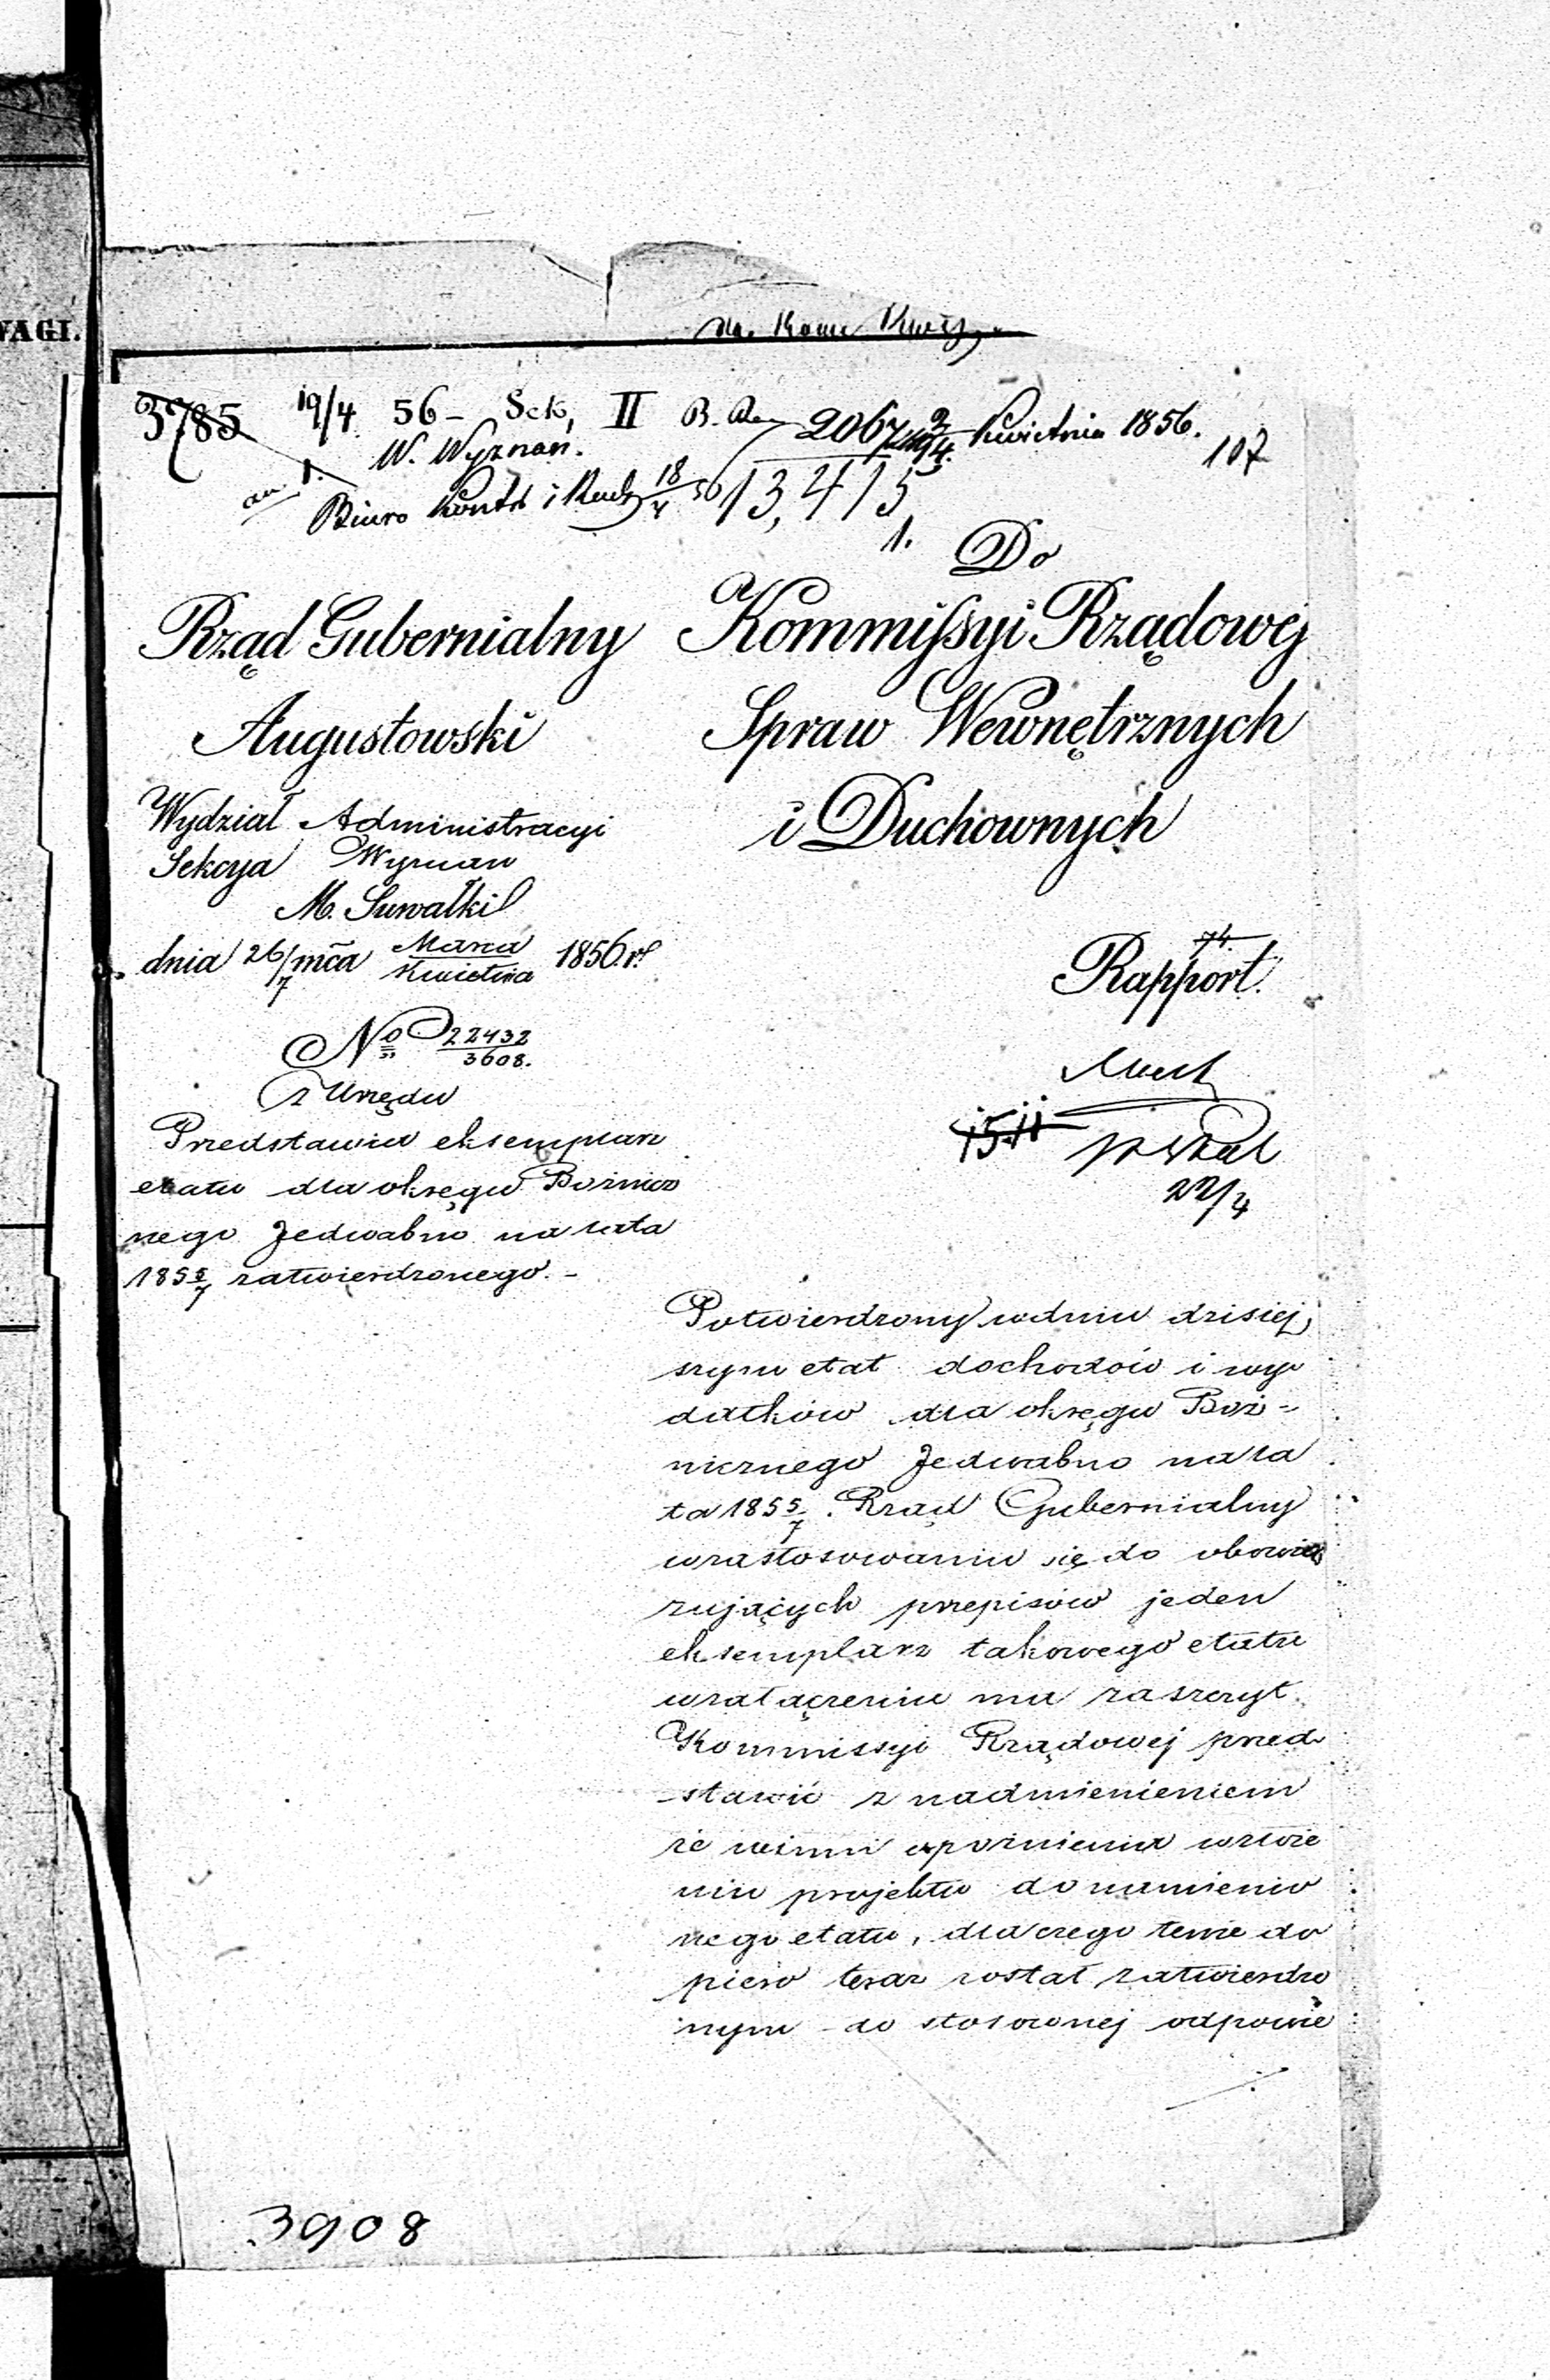 WAGI.
3785 19/4 56 – Sek, II
W. Wyznań.
2067 Kwietnia 1856.
107
Biuro Kontr i Rach 18/4 56
13,415
1.
Do
Rząd Gubernialny
Augustowski
Kommissyi Rządowej
Spraw Wewnętrznych
i Duchownych
Wydział Administracyi
Sekcya Wyznań
M. Suwałki
dnia 26/7 mča Marca/Kwietnia 1856 r.
No 22432/3608.
z Urzędu
Przedstawia eksemplarz
etatu dla okręgu Bożnicz
nego Jedwabno na lata
1855/7 zatwierdzonego. –
74.
Rapport.
15.11
22/4
Potwierdzony w dniu dzisiej
szym etat dochodów i wy
datków dla okręgu Boż=
nicznego Jedwabno na la
ta 1855/7. Rząd Gubernialny
w zastosowaniu się do obowią
zujących przepisów jeden
eksemplarz takowego etatu
w załączeniu ma zaszczyt
Kommissyi Rządowej przed
-stawić z nadmienieniem
że winni opóźnienia w zwie
niu projektu do namienio
nego etatu, dla czego tenże do
piero teraz został zatwierdzo
nym – do stosownej odpowie
3908